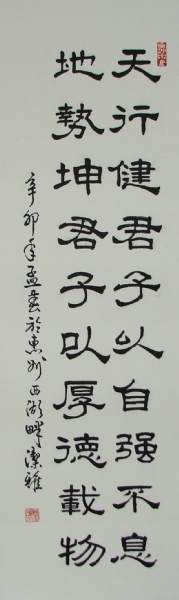 天行健君子以自强不息
地勢坤君子以厚德載物
辛卯年孟春於惠州西湖畔潔雅